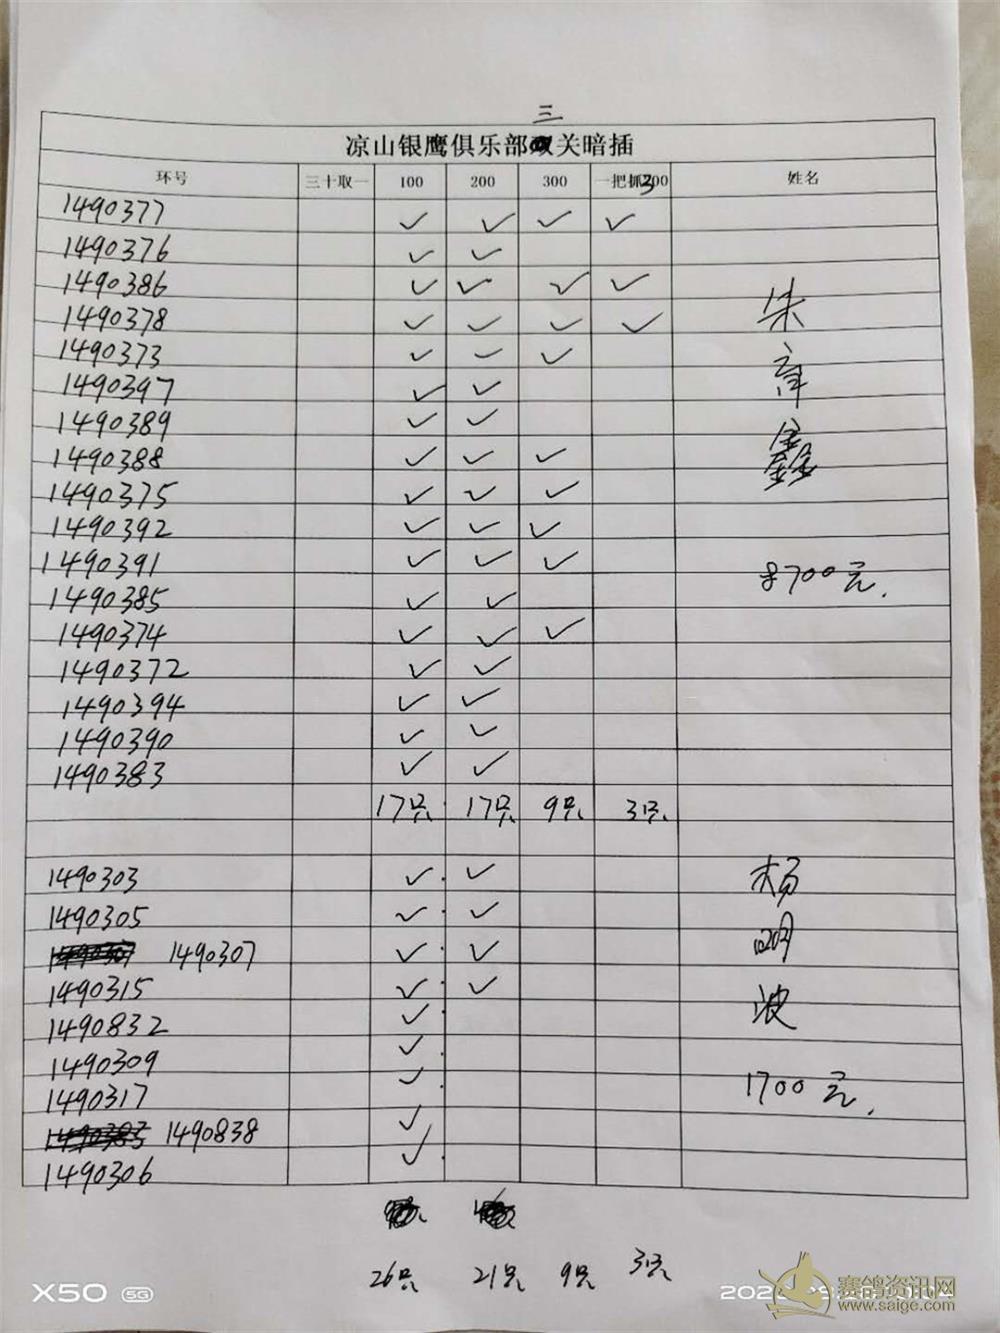 三
凉山银鹰俱乐部关暗插
环号 三十取一 100 200 300 一把抓300 姓名
1490377 ✓ ✓ ✓ ✓
1490376 ✓ ✓
1490386 ✓ ✓ ✓ ✓
1490378 ✓ ✓ ✓ ✓
1490373 ✓ ✓ ✓
1490397 ✓ ✓
1490389 ✓ ✓
1490388 ✓ ✓ ✓
1490375 ✓ ✓ ✓
1490392 ✓ ✓ ✓
1490391 ✓ ✓ ✓
1490385 ✓ ✓
1490374 ✓ ✓ ✓
1490372 ✓ ✓
1490394 ✓ ✓
1490390 ✓ ✓
1490383 ✓ ✓
朱
章
鑫
8700元.
17只 17只 9只 3只
1490303 ✓ ✓
1490305 ✓ ✓
1490307 ✓ ✓
1490315 ✓ ✓
1490832 ✓
1490309 ✓
1490317 ✓
1490838 ✓
1490306 ✓
杨
明
波
1700元.
26只 21只 9只 3只
X50 5G
赛鸽资讯网
www.saige.com